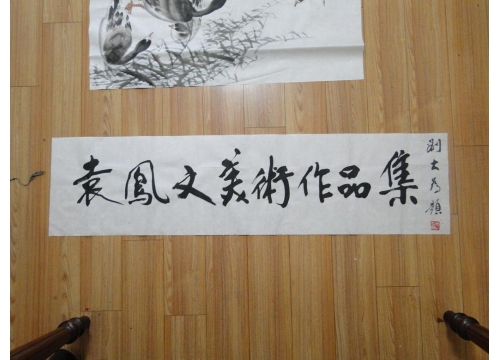 袁鳳文美術作品集
劉大為題